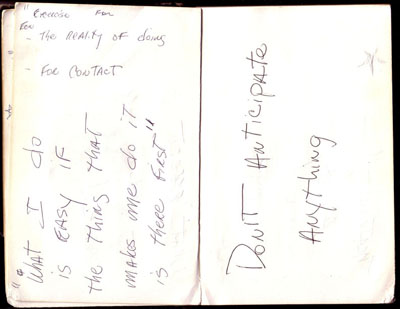 "Exercise For
For
- The REALITY OF doing
- FOR CONTACT
"What I do
is EASY IF
the thing THAT
makes me do it
is there first"
DON'T Anticipate
Anything